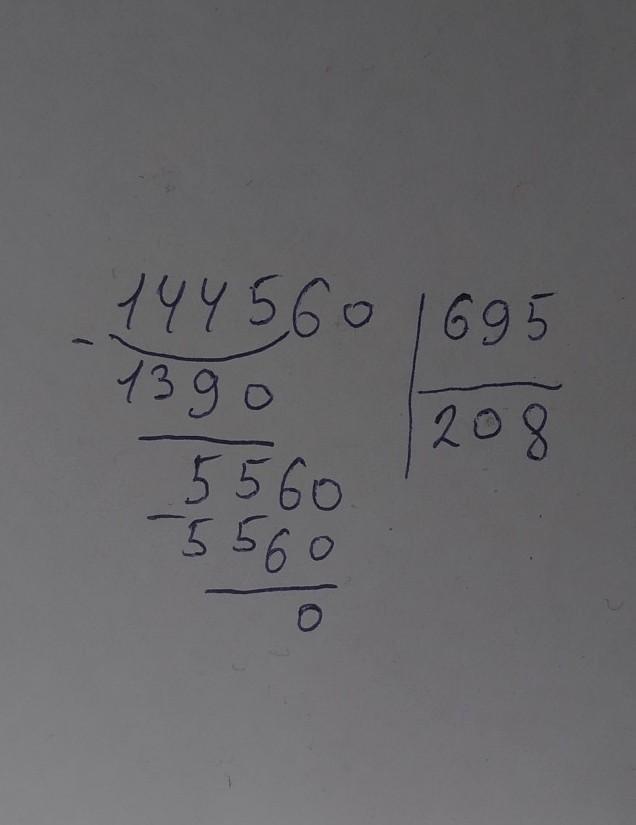 144560 695
- 1390 208
5560
- 5560
0